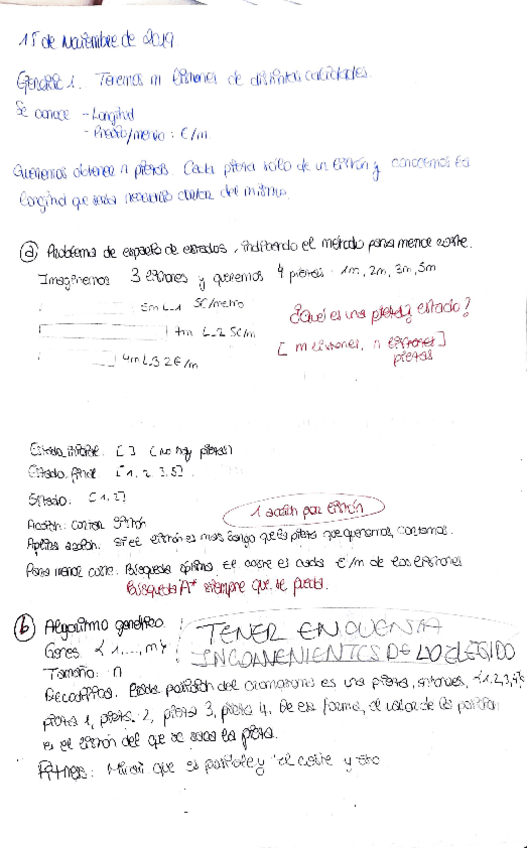 15 de Noviembre de 2019
Ejercicio 1. Tenemos m listones de distintas calidades.
Se conoce - Longitud
- Precio/metro: €/m
Queremos obtener n piezas. Cada pieza sólo de un listón y conocemos la
longitud que será necesario cortar del mismo.
a) Problema de espacio de estados, indicando el método para menor coste.
Imaginemos 3 listones y queremos 4 piezas: 1m, 2m, 3m, 5m
5m L_1 5€/metro
¿Qué es una pieza y estado?
7m L_2 5€/m
[m listones, n listones]
piezas
4m L_3 2€/m
Estado inicial: [ ] (no hay piezas)
Estado final: [1, 2, 3, 5].
Estado: [1, 2]
1 acción por listón
Acción: cortar listón
Aplica acción. Si el listón es más largo que la pieza que queremos, cortamos.
Para menor coste. Búsqueda óptima. El coste es cada €/m de los listones
Búsqueda A* siempre que se pueda.
b) Algoritmo genético.
TENER EN CUENTA
INCONVENIENTES DE LO ELEGIDO
Genes {1..., m}
Tamaño: n
Decodifica. Cada posición del cromosoma es una pieza, entonces, {1,2,3,4}
pieza 1, pieza 2, pieza 3, pieza 4. De esa forma, el valor de la posición
es el listón del que se saca la pieza.
Fitness: Mirar que es posible y el coste y